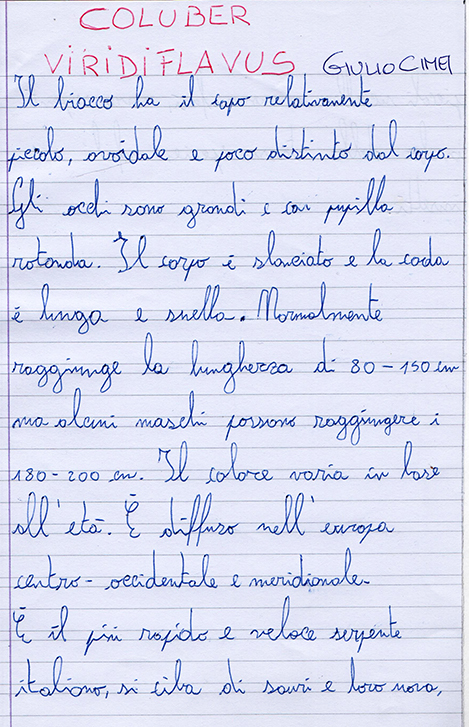 COLUBER
VIRIDIFLAVUS GIULIO CIMEI
Il biacco ha il capo relativamente
piccolo, ovoidale e poco distinto dal corpo.
Gli occhi sono grandi e con pupilla
rotonda. Il corpo é slanciato e la coda
é lunga e snella. Normalmente
raggiunge la lunghezza di 80-150 cm
ma alcuni maschi possono raggiungere i
180-200 cm. Il colore varia in base
all'etá. É diffuso nell'europa
centro-occidentale e meridionale.
É il piú rapido e veloce serpente
italiano, si ciba di sauri e loro uova,